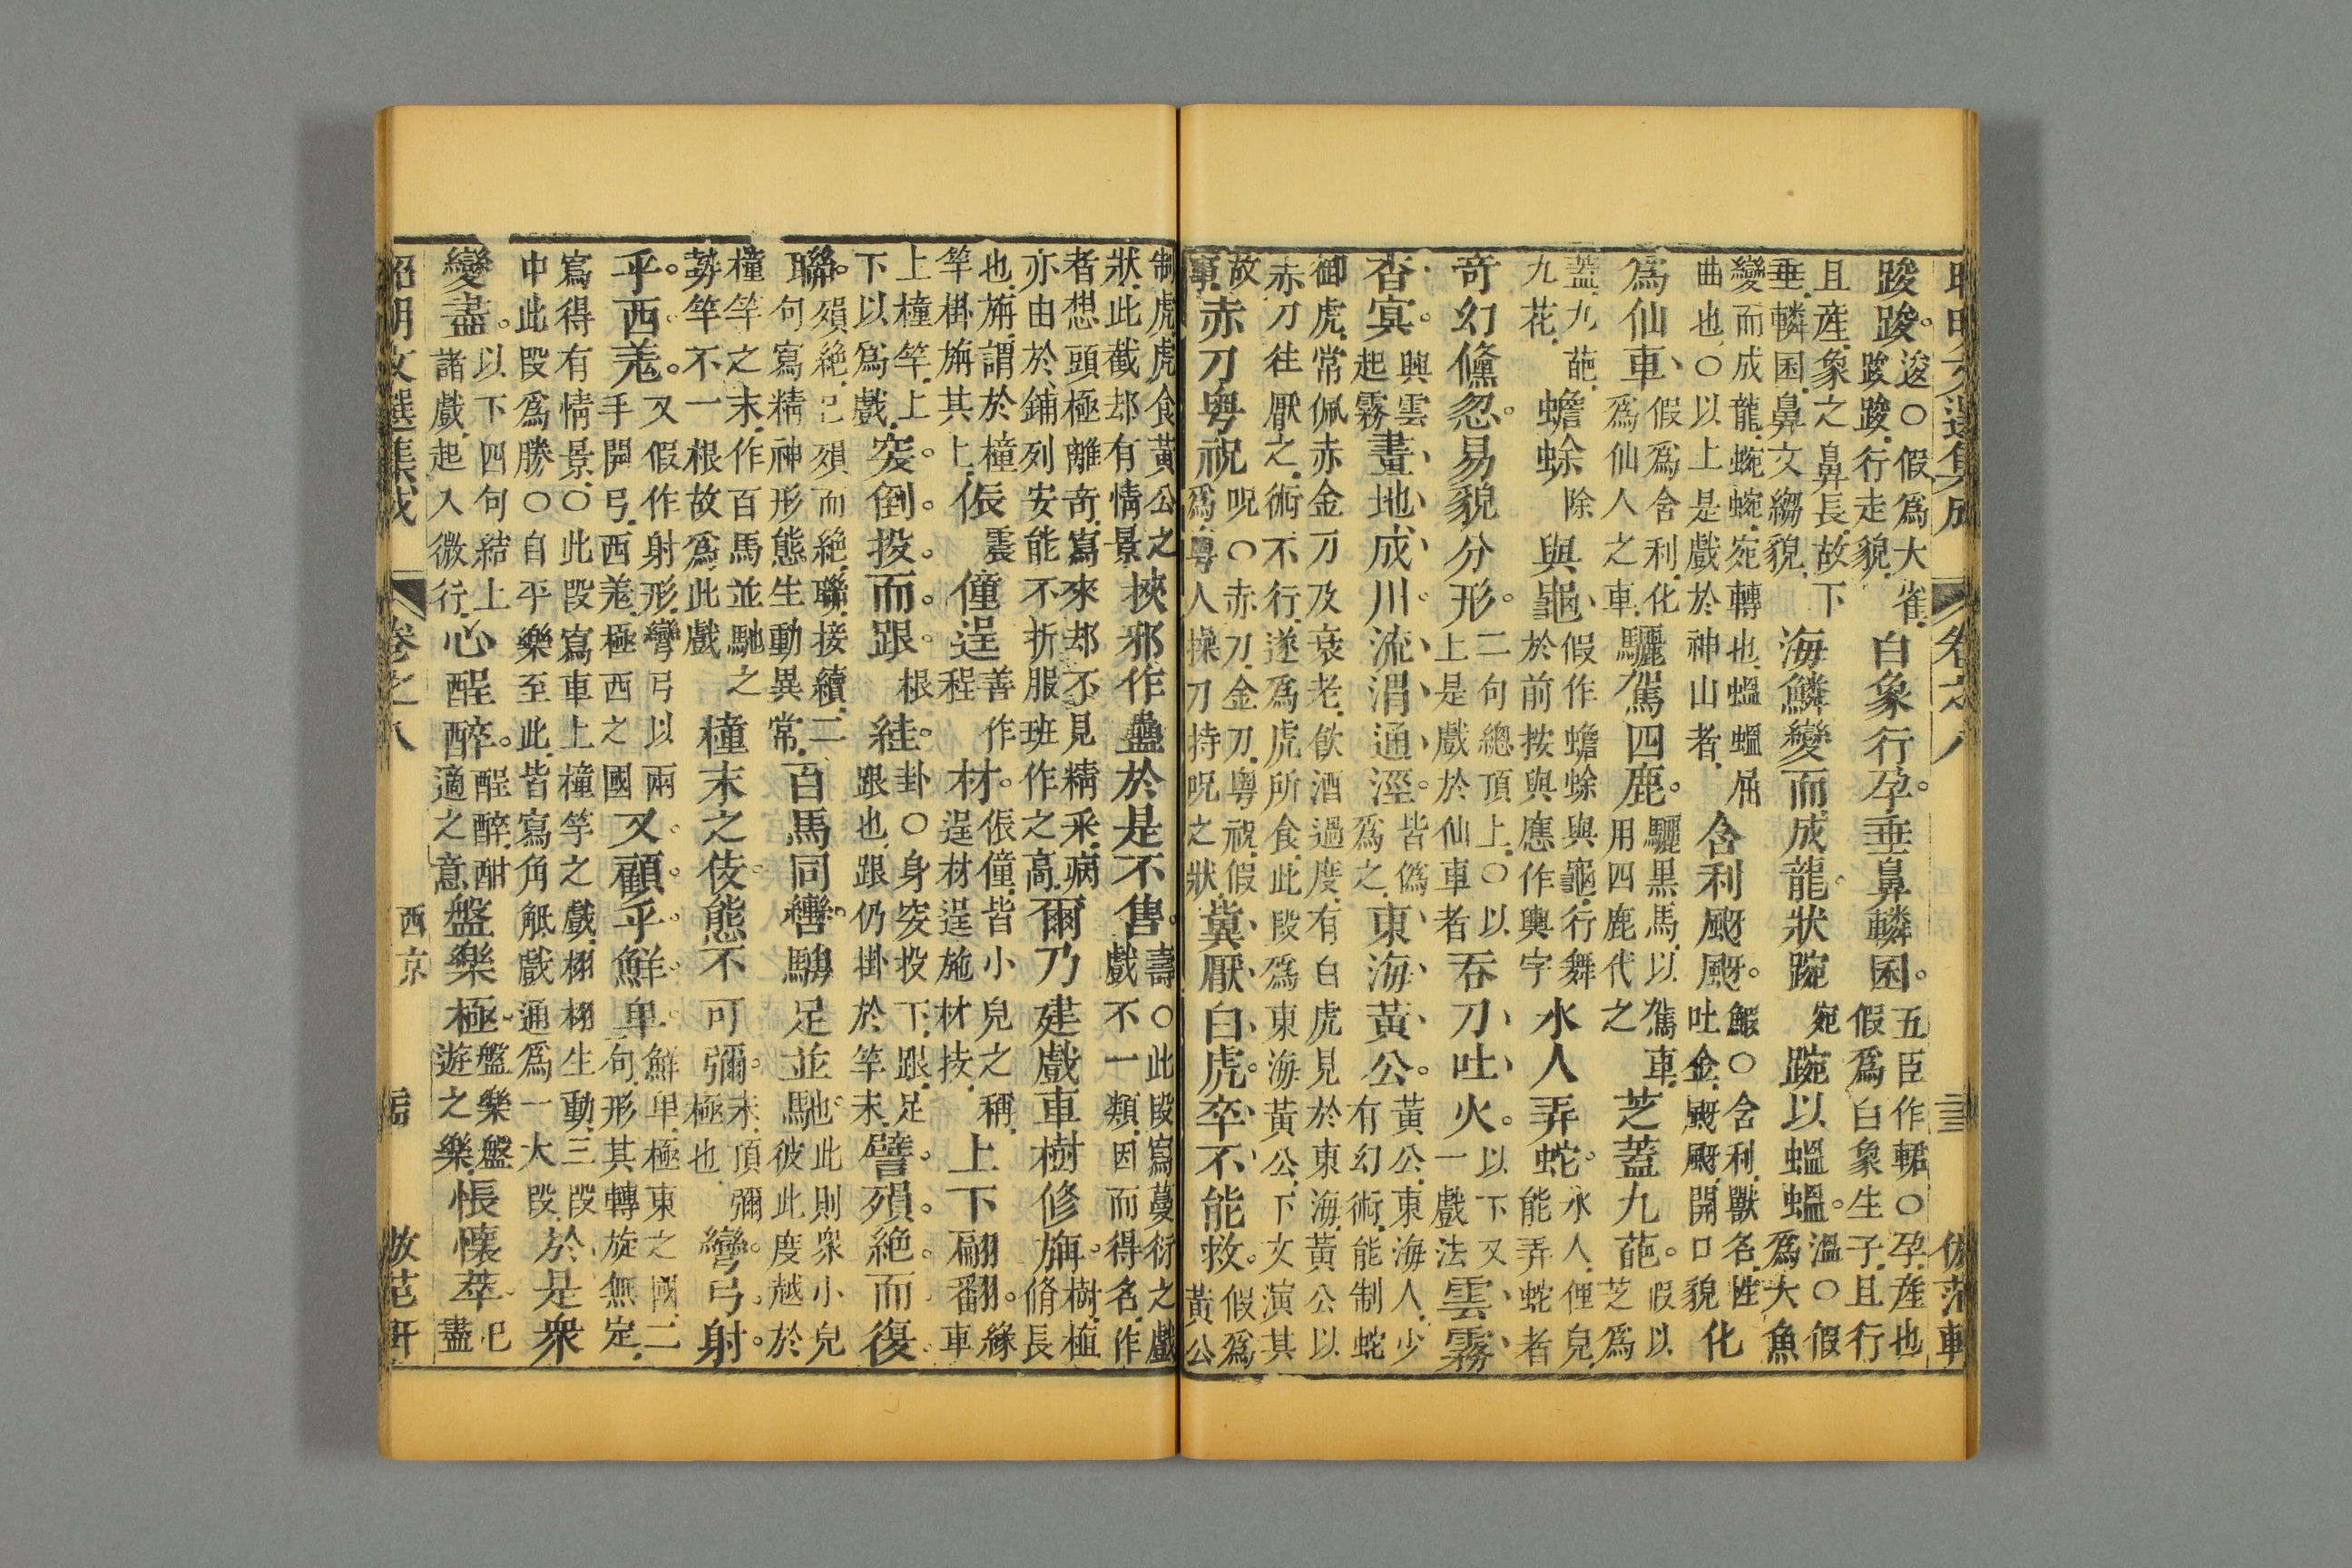 昭明文選集成 卷之八 倣范軒
踆踆。逡○假爲大雀踆踆行走貌白象行孕。垂鼻轔囷。五臣作輑○孕產也假爲白象生子且行
且產象之鼻長故下垂轔囷鼻文縐貌海鱗變而成龍。狀踠宛踠以蝹蝹。溫○假爲大魚
變而成龍蜿蜿宛轉也蝹蝹屈曲也○以上是戲於神山者舍利颬颬。鰕○舍利獸名性吐金颬颬開口貌化
爲仙車、假爲舍利化爲仙人之車驪駕四鹿。驪黑馬以駕車用四鹿代之芝蓋九葩。假以芝爲
蓋九葩九花蟾蜍除與龜、假作蟾蜍與龜行舞於前按與應作輿字水人弄蛇。水人俚兒能弄蛇者
奇幻儵忽。易貌分形。二句總頂上○以上是戲於仙車者吞刀、吐火。以下又一戲法雲霧、
杳冥。興雲起霧畫地成川。流渭通涇。皆僞爲之東海黃公。黃公東海人少有幻術能制蛇
御虎常佩赤金刀及衰老飲酒過度有白虎見於東海黃公以赤刀往厭之術不行遂爲虎所食此段爲東海黃公下文演其
故事赤刀粵祝呪○赤刀金刀粵祝假爲粵人操刀持呪之狀冀厭白虎。卒不能救。假爲黃公
制虎虎食黃公之狀此截却有情景挾邪作蠱於是不售。壽○此段寫蔓衍之戲戲不一類因而得名作
者想頭極離奇寫來却不見精采病亦由於鋪列安能不折服班作之高爾乃建戲車樹修旃。樹植脩長
也旃謂於橦竿掛旃其上侲震僮逞善作程材。侲僮皆小兒之稱逞材逞施材技上下翩翻。緣車
上橦竿上下以爲戲突倒投而跟根絓。卦○身突投下跟足跟也跟仍掛於竿末譬殞絕而復
聯。殞絕已殞而絕聯接續二句寫精神形態生動異常百馬同轡。騁足並馳。也此則衆小兒彼此度越於
橦竿之末作百馬並馳之勢竿不一根故爲此戲橦末之伎。態不可彌。末頂彌極也彎弓射
乎西羌。又假作射形彎弓以兩手開弓西羌極西之國又顧乎鮮卑。鮮卑極東之國二句形其轉旋無定
寫得有情景○此段寫車上橦竿之戲栩栩生動三段中此段爲勝○自平樂至此皆寫角觝戲通爲一大段於是衆
變盡。以下四句結上諸戲起入微行心酲醉。酲醉酣適之意盤樂極。盤樂盤遊之樂悵懷萃。已盡
昭明文選集成 卷之八 西京 倣范軒